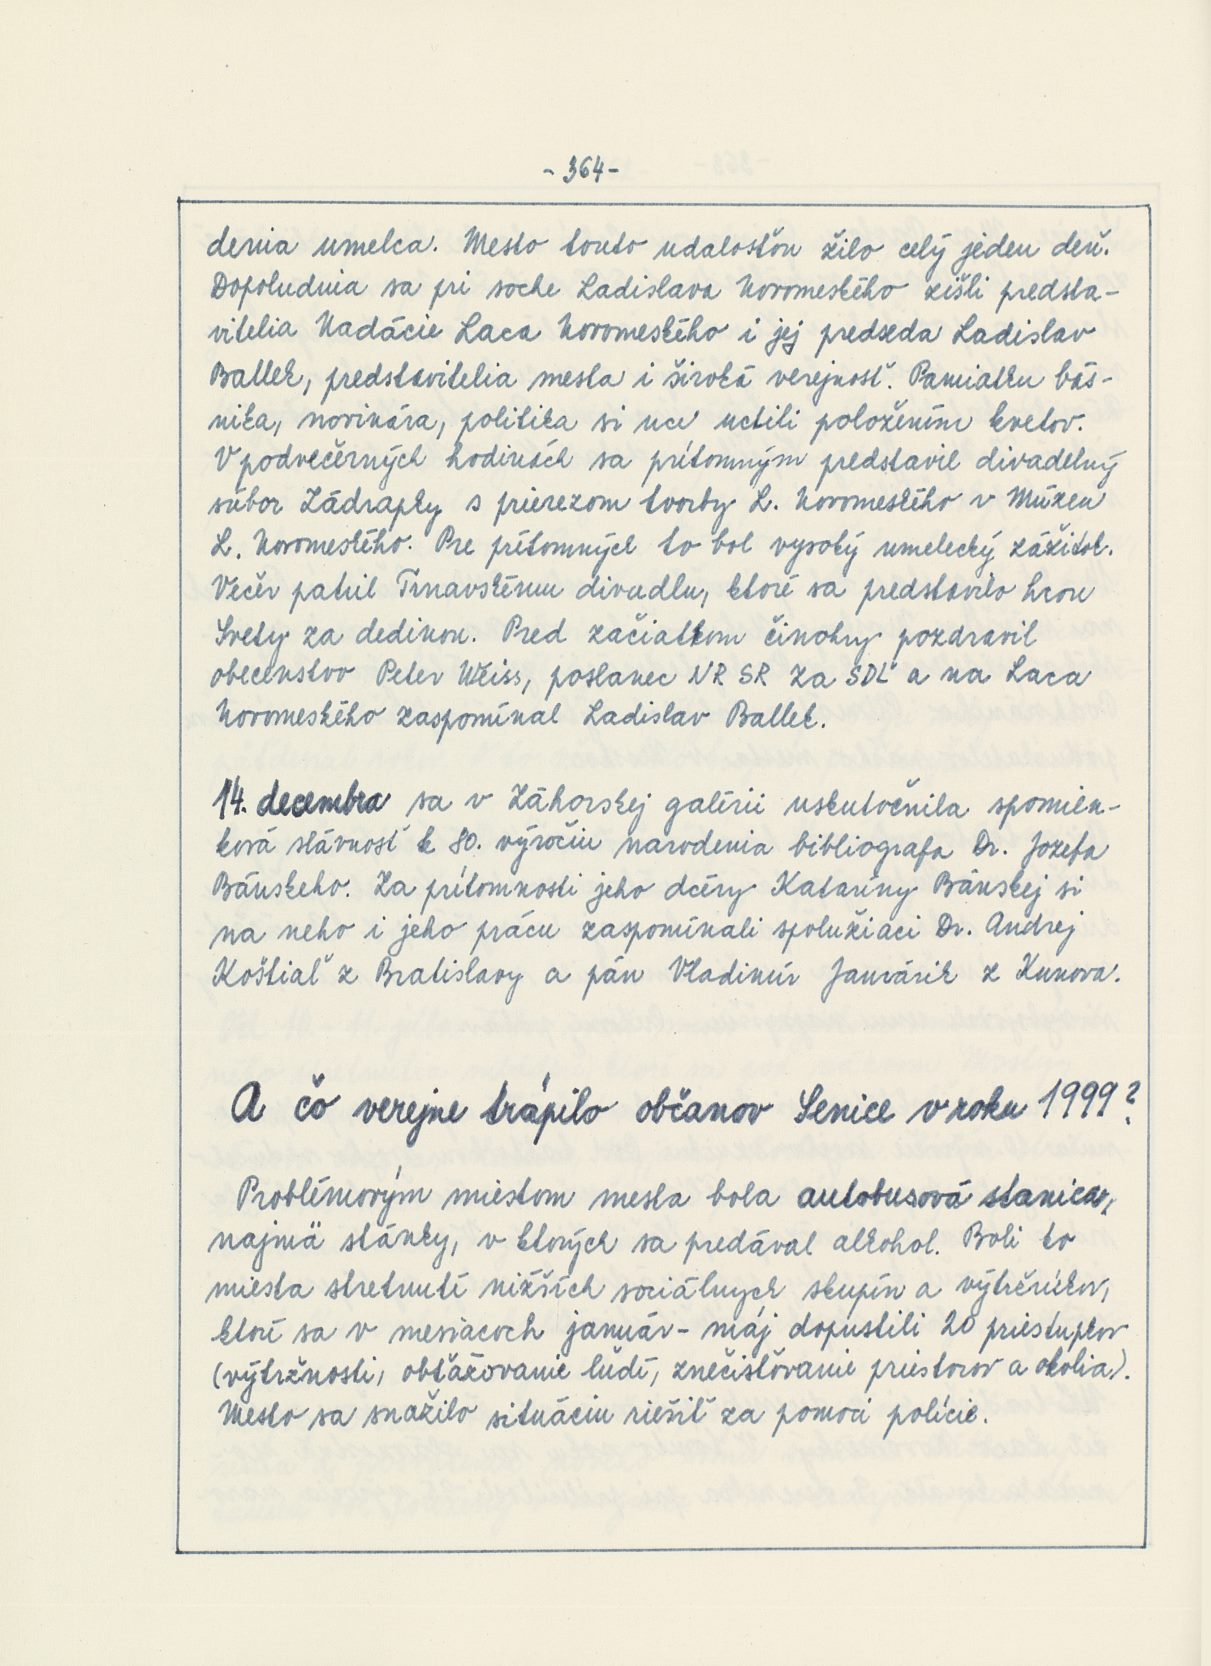 - 364 -
denia umelca. Mesto touto udalosťou žilo celý jeden deň.
Dopoludnia sa pri soche Ladislava Novomeského zišli predsta-
vitelia Nadácie Laca Novomeského i jej predseda Ladislav
Ballek, predstavitelia mesta i široká verejnosť. Pamiatku bás-
nika, novinára, politika si uctili položením kvetov.
V podvečerných hodinách sa prítomným predstavil divadelný
súbor Zádrapky s prierezom tvorby L. Novomeského v Múzeu
L. Novomeského. Pre prítomných to bol vysoký umelecký zážitok.
Večer patril Trnavskému divadlu, ktoré sa predstavilo hrou
Svety za dedinou. Pred začiatkom činohry pozdravil
obecenstvo Peter Weiss, poslanec NR SR za SDĽ a na Laca
Novomeského zaspomínal Ladislav Ballek.
14. decembra sa v Záhorskej galérii uskutočnila spomien-
ková slávnosť k 80. výročiu narodenia bibliografa Dr. Jozefa
Bánskeho. Za prítomnosti jeho dcéry Kataríny Bánskej si
na neho i jeho prácu zaspomínali spolužiaci Dr. Andrej
Koštiaľ z Bratislavy a pán Vladimír Janvárik z Kunova.
A čo verejne trápilo občanov Senice v roku 1999?
Problémovým miestom mesta bola autobusová stanica,
najmä stánky, v ktorých sa predával alkohol. Boli to
miesta stretnutí nižších sociálnych skupín a výtržníkov,
ktorí sa v mesiacoch január - máj dopustili 20 priestupkov
(výtržnosti, obťažovanie ľudí, znečisťovanie priestorov a okolia).
Mesto sa snažilo situáciu riešiť za pomoci polície.